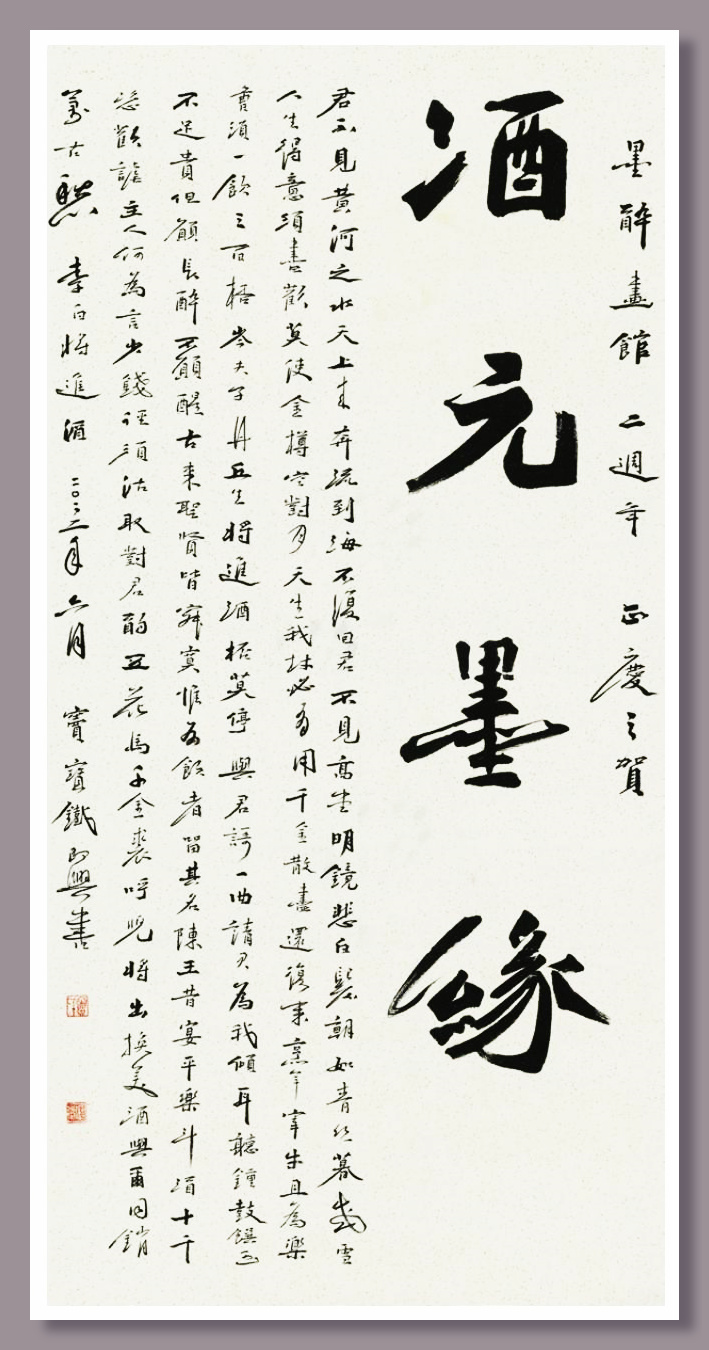 墨醉畫館 二週年 正慶之賀
酒元墨緣
君不見黃河之水天上来奔流到海不復回君不見高堂明鏡悲白髮朝如青丝暮成雪
人生得意須盡歡莫使金樽空對月天生我材必有用千金散盡還復来烹羊宰牛且為樂
會須一飲三百杯岑夫子丹丘生將進酒杯莫停與君謌一曲請君為我傾耳聽鐘鼓饌玉
不足貴但願長醉不願醒古来聖賢皆寂寞惟有飲者留其名陳王昔宴平樂斗酒十千
恣歡謔主人何為言少錢徑須沽取對君酌五花馬千金裘呼兒將出換美酒與爾同銷
萬古愁 李白將進酒 二〇二三年六月 寶寶鐵 即興書